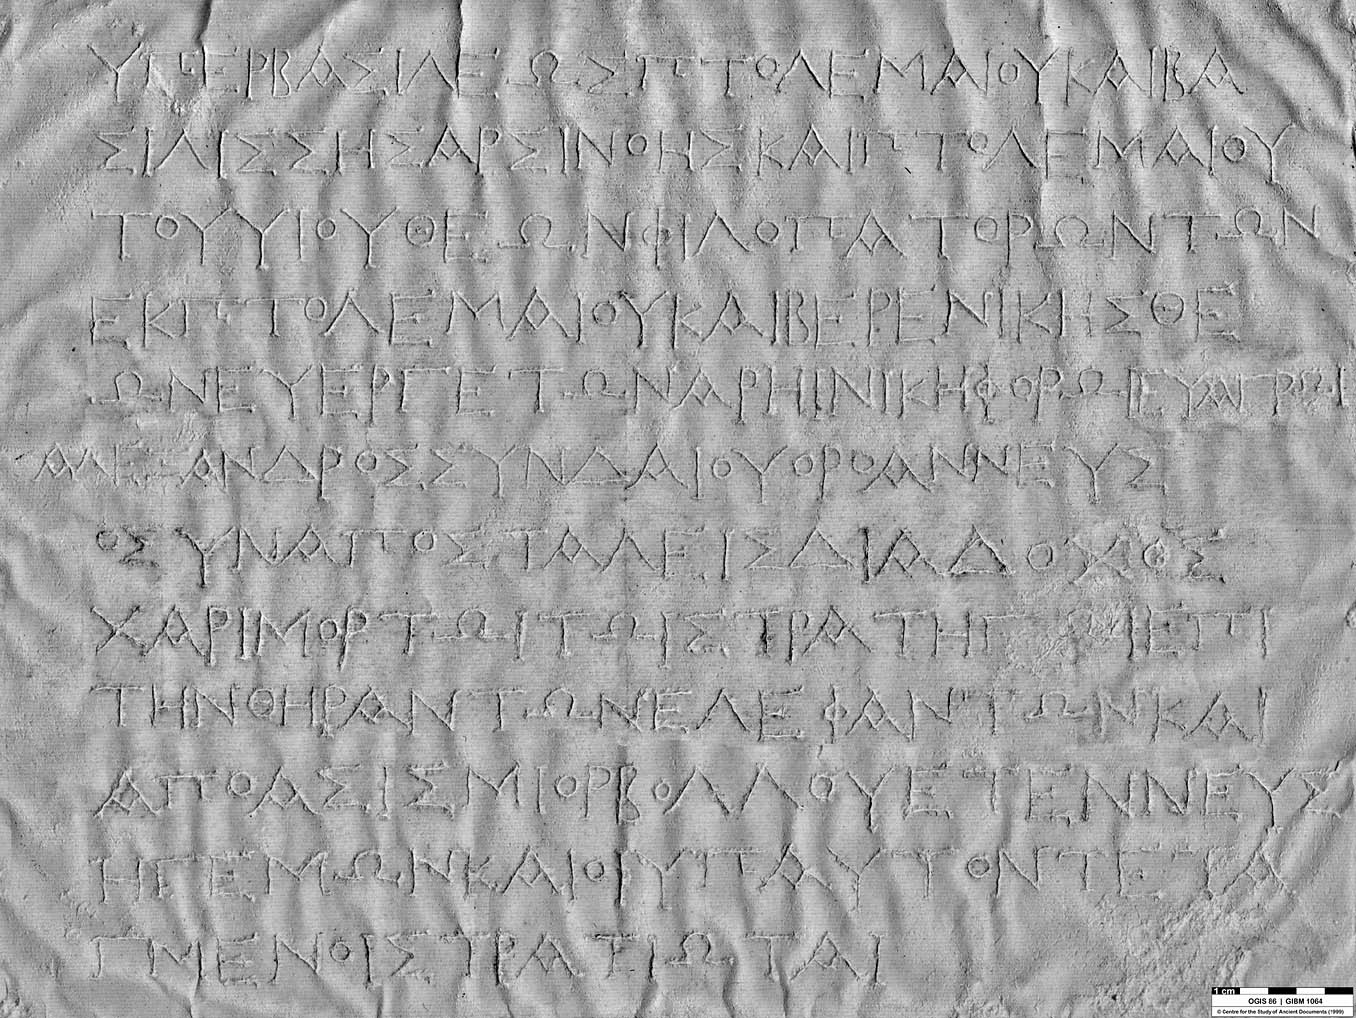 ΥΠΕΡΒΑΣΙΛΕΩΣΠΤΟΛΕΜΑΙΟΥΚΑΙΒΑ
ΣΙΛΙΣΣΗΣΑΡΣΙΝΟΗΣΚΑΙΠΤΟΛΕΜΑΙΟΥ
ΤΟΥΥΙΟΥΘΕΩΝΦΙΛΟΠΑΤΟΡΩΝΤΩΝ
ΕΚΠΤΟΛΕΜΑΙΟΥΚΑΙΒΕΡΕΝΙΚΗΣΘΕ
ΩΝΕΥΕΡΓΕΤΩΝΑΡΗΙΝΙΚΗΦΟΡΩΙΕΥΑΓΡΩΙ
ΑΛΕΞΑΝΔΡΟΣΣΥΝΔΑΙΟΥΟΡΟΑΝΝΕΥΣ
ΟΣΥΝΑΠΟΣΤΑΛΕΙΣΔΙΑΔΟΧΟΣ
ΧΑΡΙΜΟΡΤΩΙΤΩΙΣΤΡΑΤΗΓΩΙΕΠΙ
ΤΗΝΘΗΡΑΝΤΩΝΕΛΕΦΑΝΤΩΝΚΑΙ
ΑΠΟΑΣΙΣΜΙΟΡΒΟΛΛΟΥΕΤΕΝΝΕΥΣ
ΗΓΕΜΩΝΚΑΙΟΙΥΠΑΥΤΟΝΤΕΤΑ
ΓΜΕΝΟΙΣΤΡΑΤΙΩΤΑΙ
1 cm
OGIS 86 | GIBM 1064
© Centre for the Study of Ancient Documents (1999)